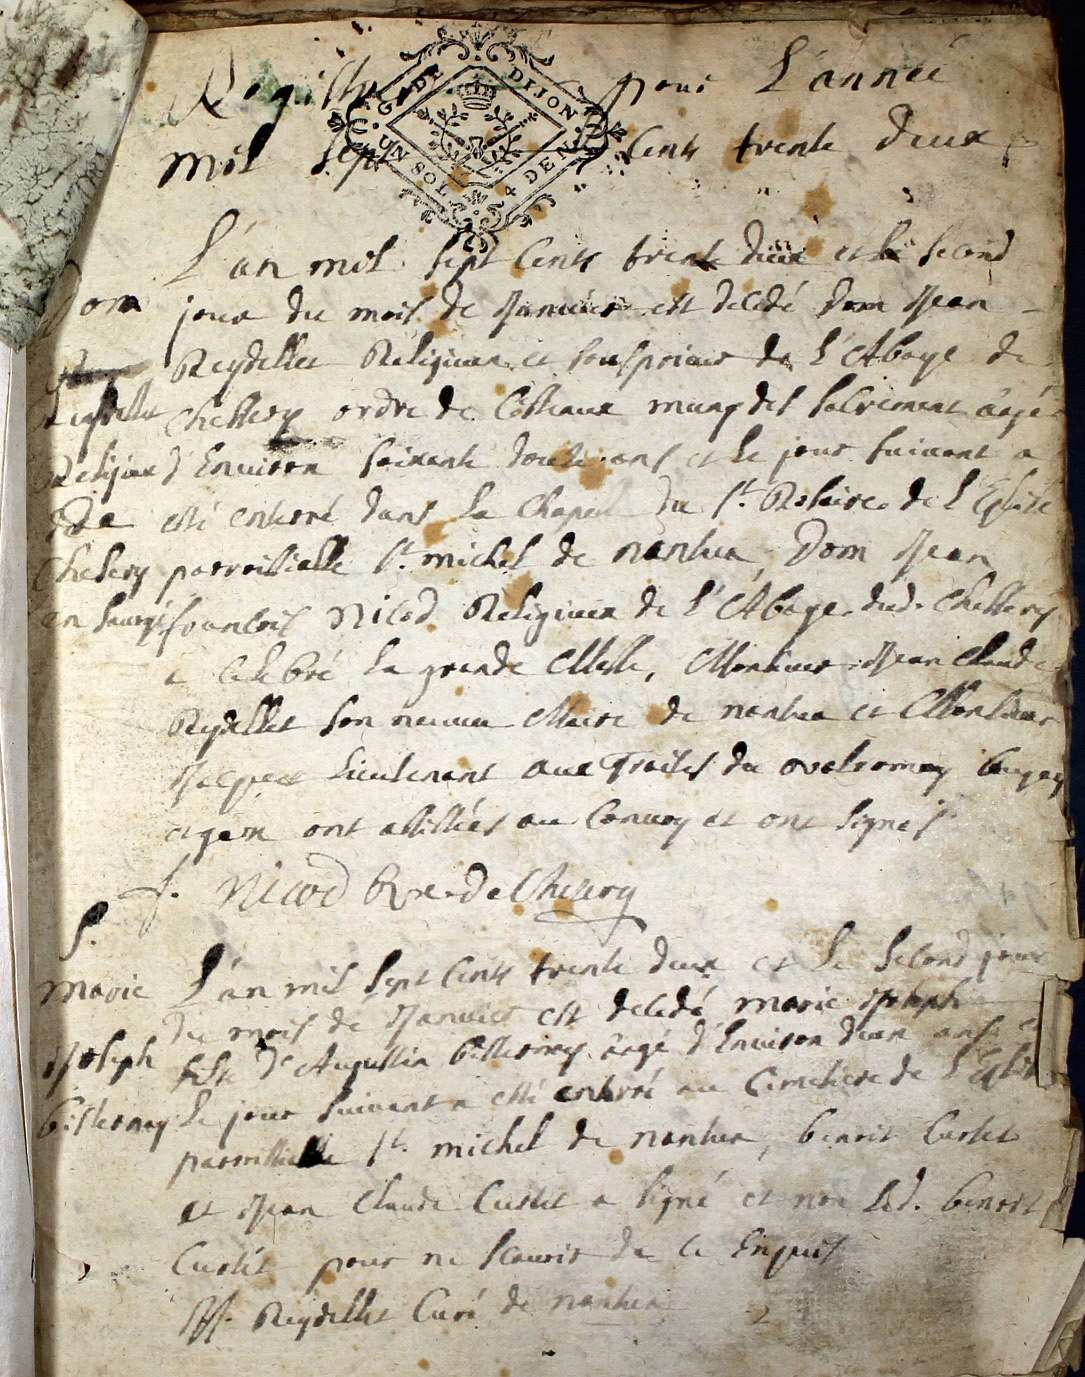 Registre pour L'année
G. DE DIJON
UN SOL 4 DEN.
mil sept Cents trente deux
L'an mil sept Cents trente deux et le second
Dom
jour du mois de Janvier est decedé Dom Jean
Reydellet Religieux et sousprieur de L'Abaye de
Reydellet
Chesery ordre de Citteaux muny des sacrement aagé
Religieux
d'Environ soixante douze ans et le jour suivant a
de
esté enterré dans la Chapelle du St. Rosaire de l'Eglise
Chesery
parroissialle St. michel de nantua, Dom Jean
francois Nicod Religieux de L'Abaye dud. Chesery
a celebré la grande Messe, Monsieur Jean Claude
Reydellet son neveu Maire de nantua et Monsieur
Lieutenant aux Traites du valromey bugey
et gex ont assistés au Convoy et ont signés
f. Nicod Rx de Chesery
S.
marie
Joseph
L'an mil sept Cents trente deux et Le second jour
du mois de Janvier est decedé marie Joseph
fille d'Augustin aagé d'Environ deux ans et
le jour suivant a esté enterré au Cimetiere de l'Eglise
parroissialle St. michel de nantua, benoit Curtet
et Jean Claude Curtet a signé et non led. benoit
Curtet pour ne scavoir de ce Enquis
Reydellet Curé de nantua